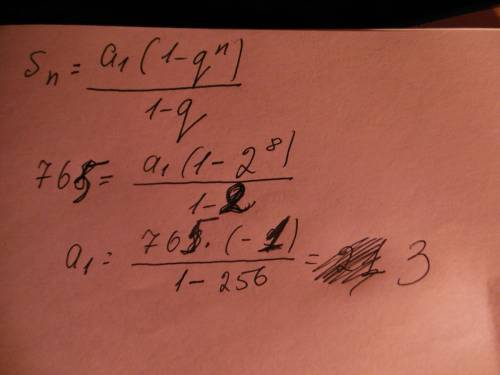 Sn = a1 (1-q^n) / 1-q
765 = a1 (1-2^8) / 1-2
a1 = 765. (-1) / 1-256 = 3